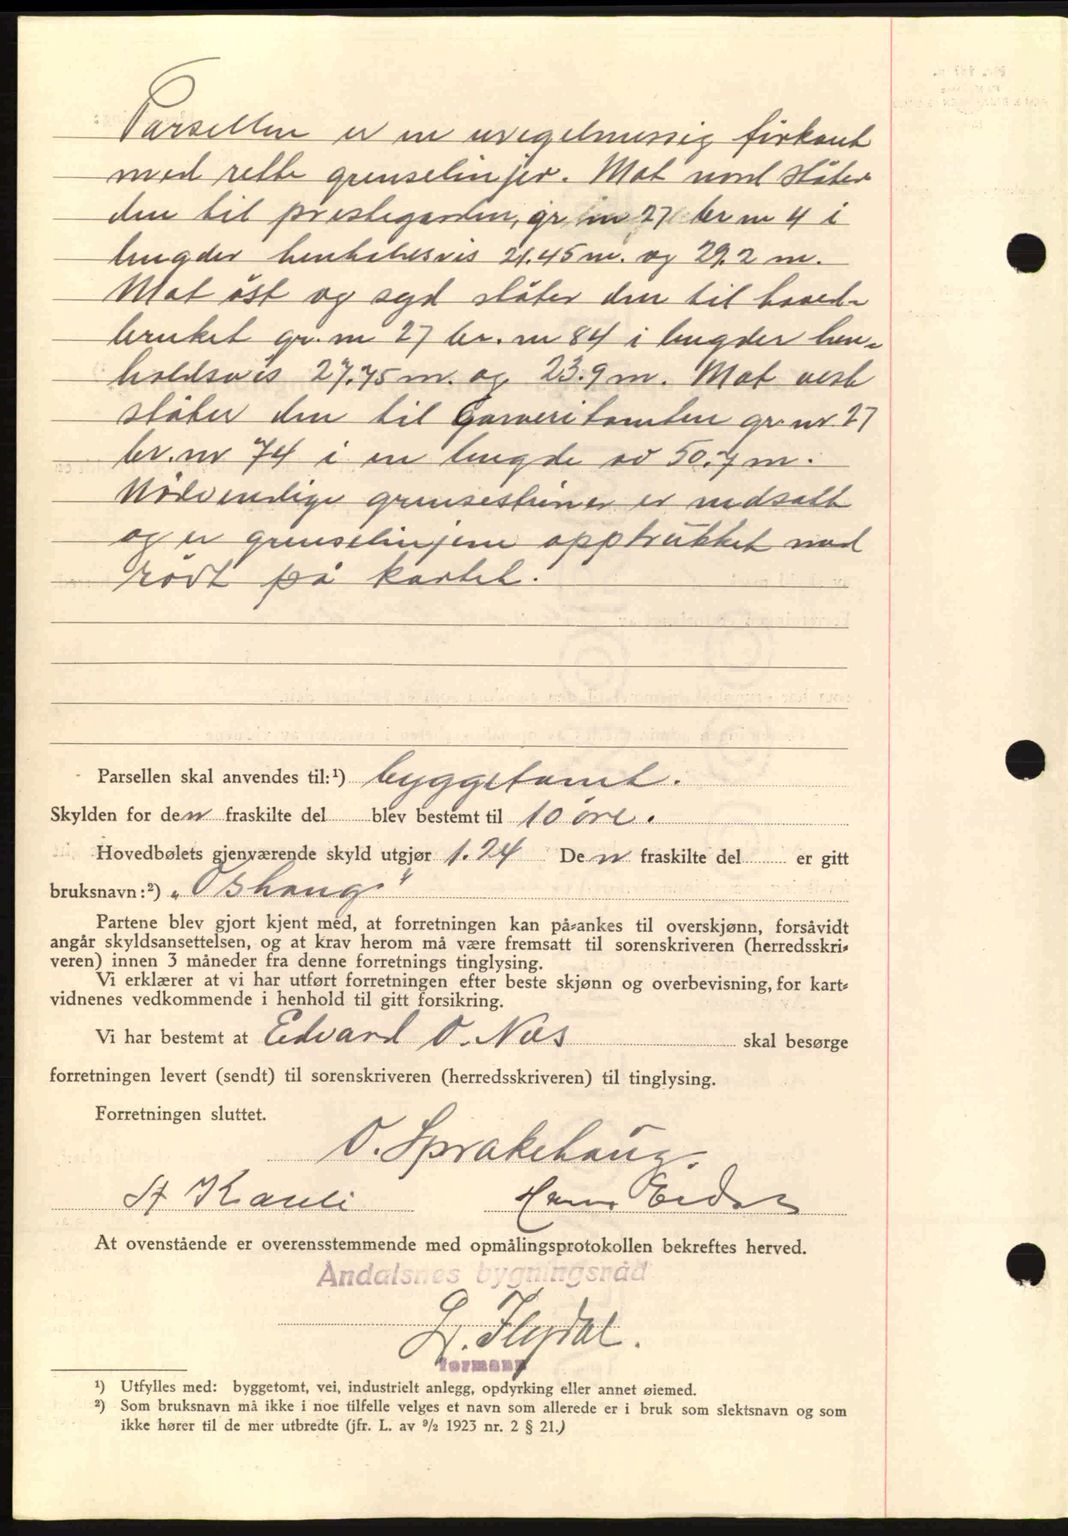 Parsellen er en uregelmessig firkant
med rette grenselinjer. Mot nord støter
den til prestegarden, gr. nr. 27 br nr 4 i
lengder henholdsvis 21.45 m. og 29.2 m.
Mot öst og syd støter den til hoved-
bruket gr. nr 27 br. nr 84 i lengder hen-
holdsvis 27.75 m. og 23.9 m. Mot vest
støter den til Garveritomten gr. nr 27
br. nr 74 i en lengde av 50.7 m.
Nødvendige grensesteiner er nedsatt
og er grenselinjene opptrukket med
rødt på kartet.
Parsellen skal anvendes til:¹) byggetomt.
Skylden for den fraskilte del blev bestemt til 10 øre.
Hovedbølets gjenværende skyld utgjør 1.24 Den fraskilte del er gitt
bruksnavn:²) „Oshaug"
Partene blev gjort kjent med, at forretningen kan på-ankes til overskjønn, forsåvidt
angår skyldsansettelsen, og at krav herom må være fremsatt til sorenskriveren (herredsskri-
veren) innen 3 måneder fra denne forretnings tinglysing.
Vi erklærer at vi har utført forretningen efter beste skjønn og overbevisning, for kart-
vidnenes vedkommende i henhold til gitt forsikring.
Vi har bestemt at Edvard O. Næs skal besørge
forretningen levert (sendt) til sorenskriveren (herredsskriveren) til tinglysing.
Forretningen sluttet.
O. Sprakehaug.
St Kavli Hans Eidos
At ovenstående er overensstemmende med opmålingsprotokollen bekreftes herved.
Åndalsnes bygningsråd
L. Flydal.
formann
¹) Utfylles med: byggetomt, vei, industrielt anlegg, opdyrking eller annet øiemed.
²) Som bruksnavn må ikke i noe tilfelle velges et navn som allerede er i bruk som slektsnavn og som
ikke hører til de mer utbredte (jfr. L. av 9/2 1923 nr. 2 § 21.)